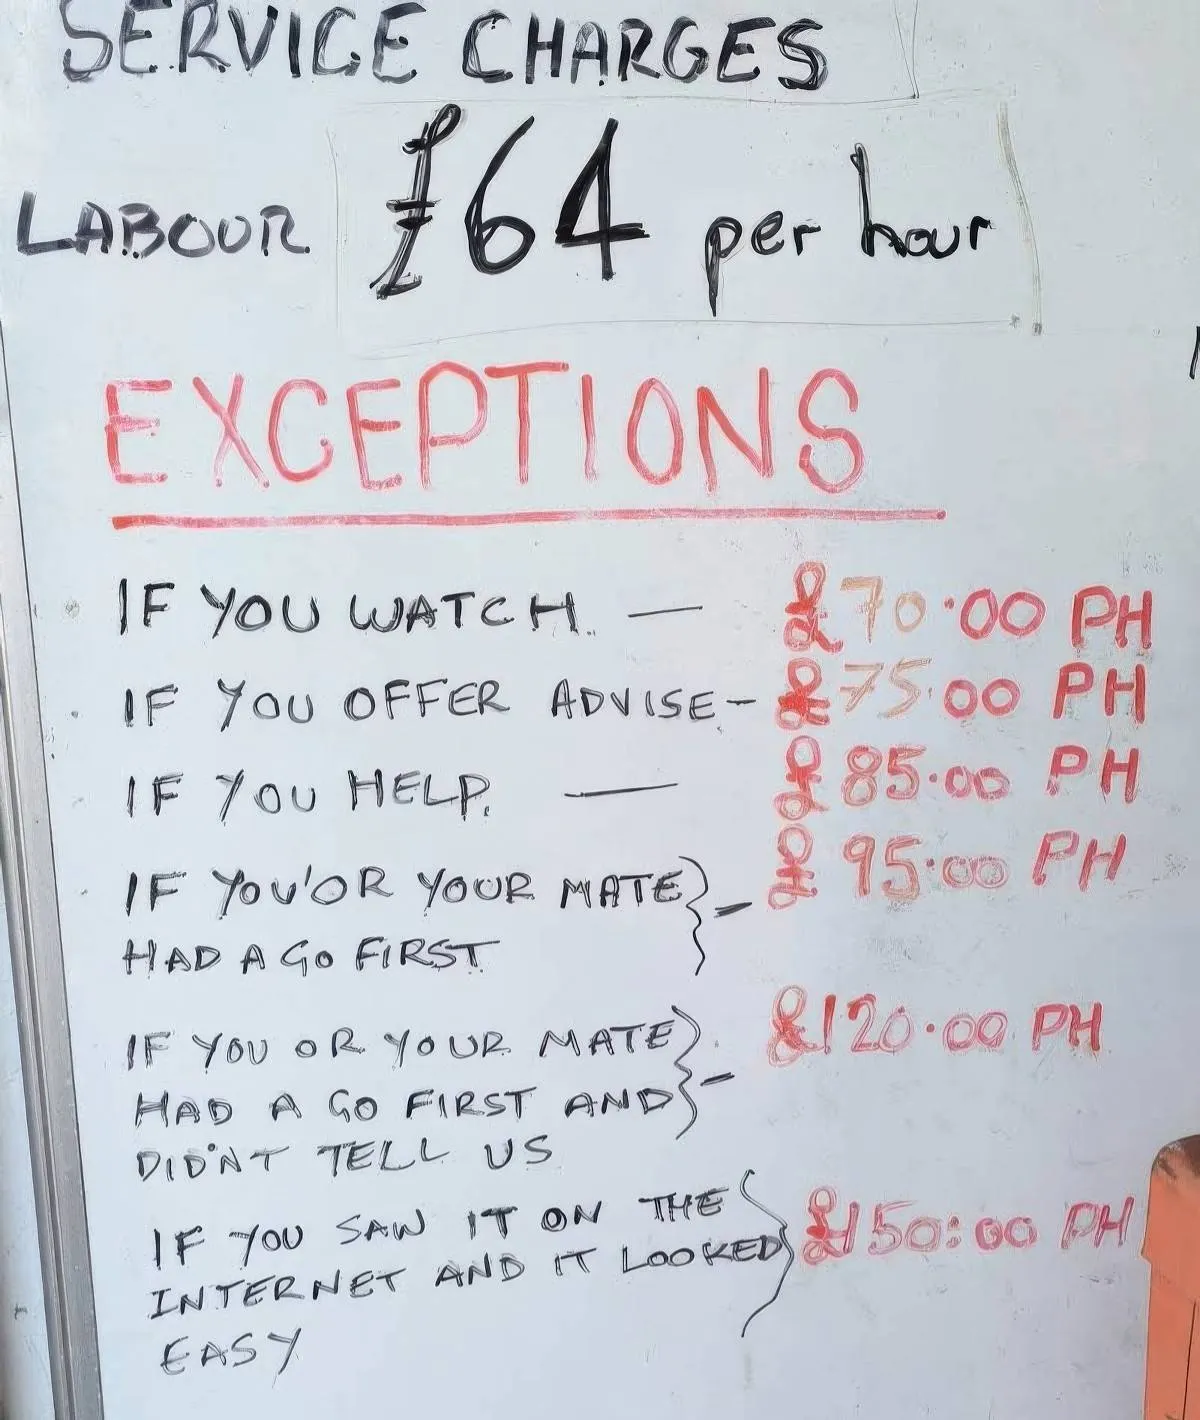 SERVICE CHARGES
LABOUR £64 per hour
EXCEPTIONS
IF YOU WATCH. — £70.00 PH
IF YOU OFFER ADVISE - £75.00 PH
IF YOU HELP. — £85.00 PH
IF YOU'OR YOUR MATE - £95.00 PH
HAD A GO FIRST
IF YOU OR YOUR MATE - £120.00 PH
HAD A GO FIRST AND
DIDN'T TELL US
IF YOU SAW IT ON THE £150:00 PH
INTERNET AND IT LOOKED
EASY